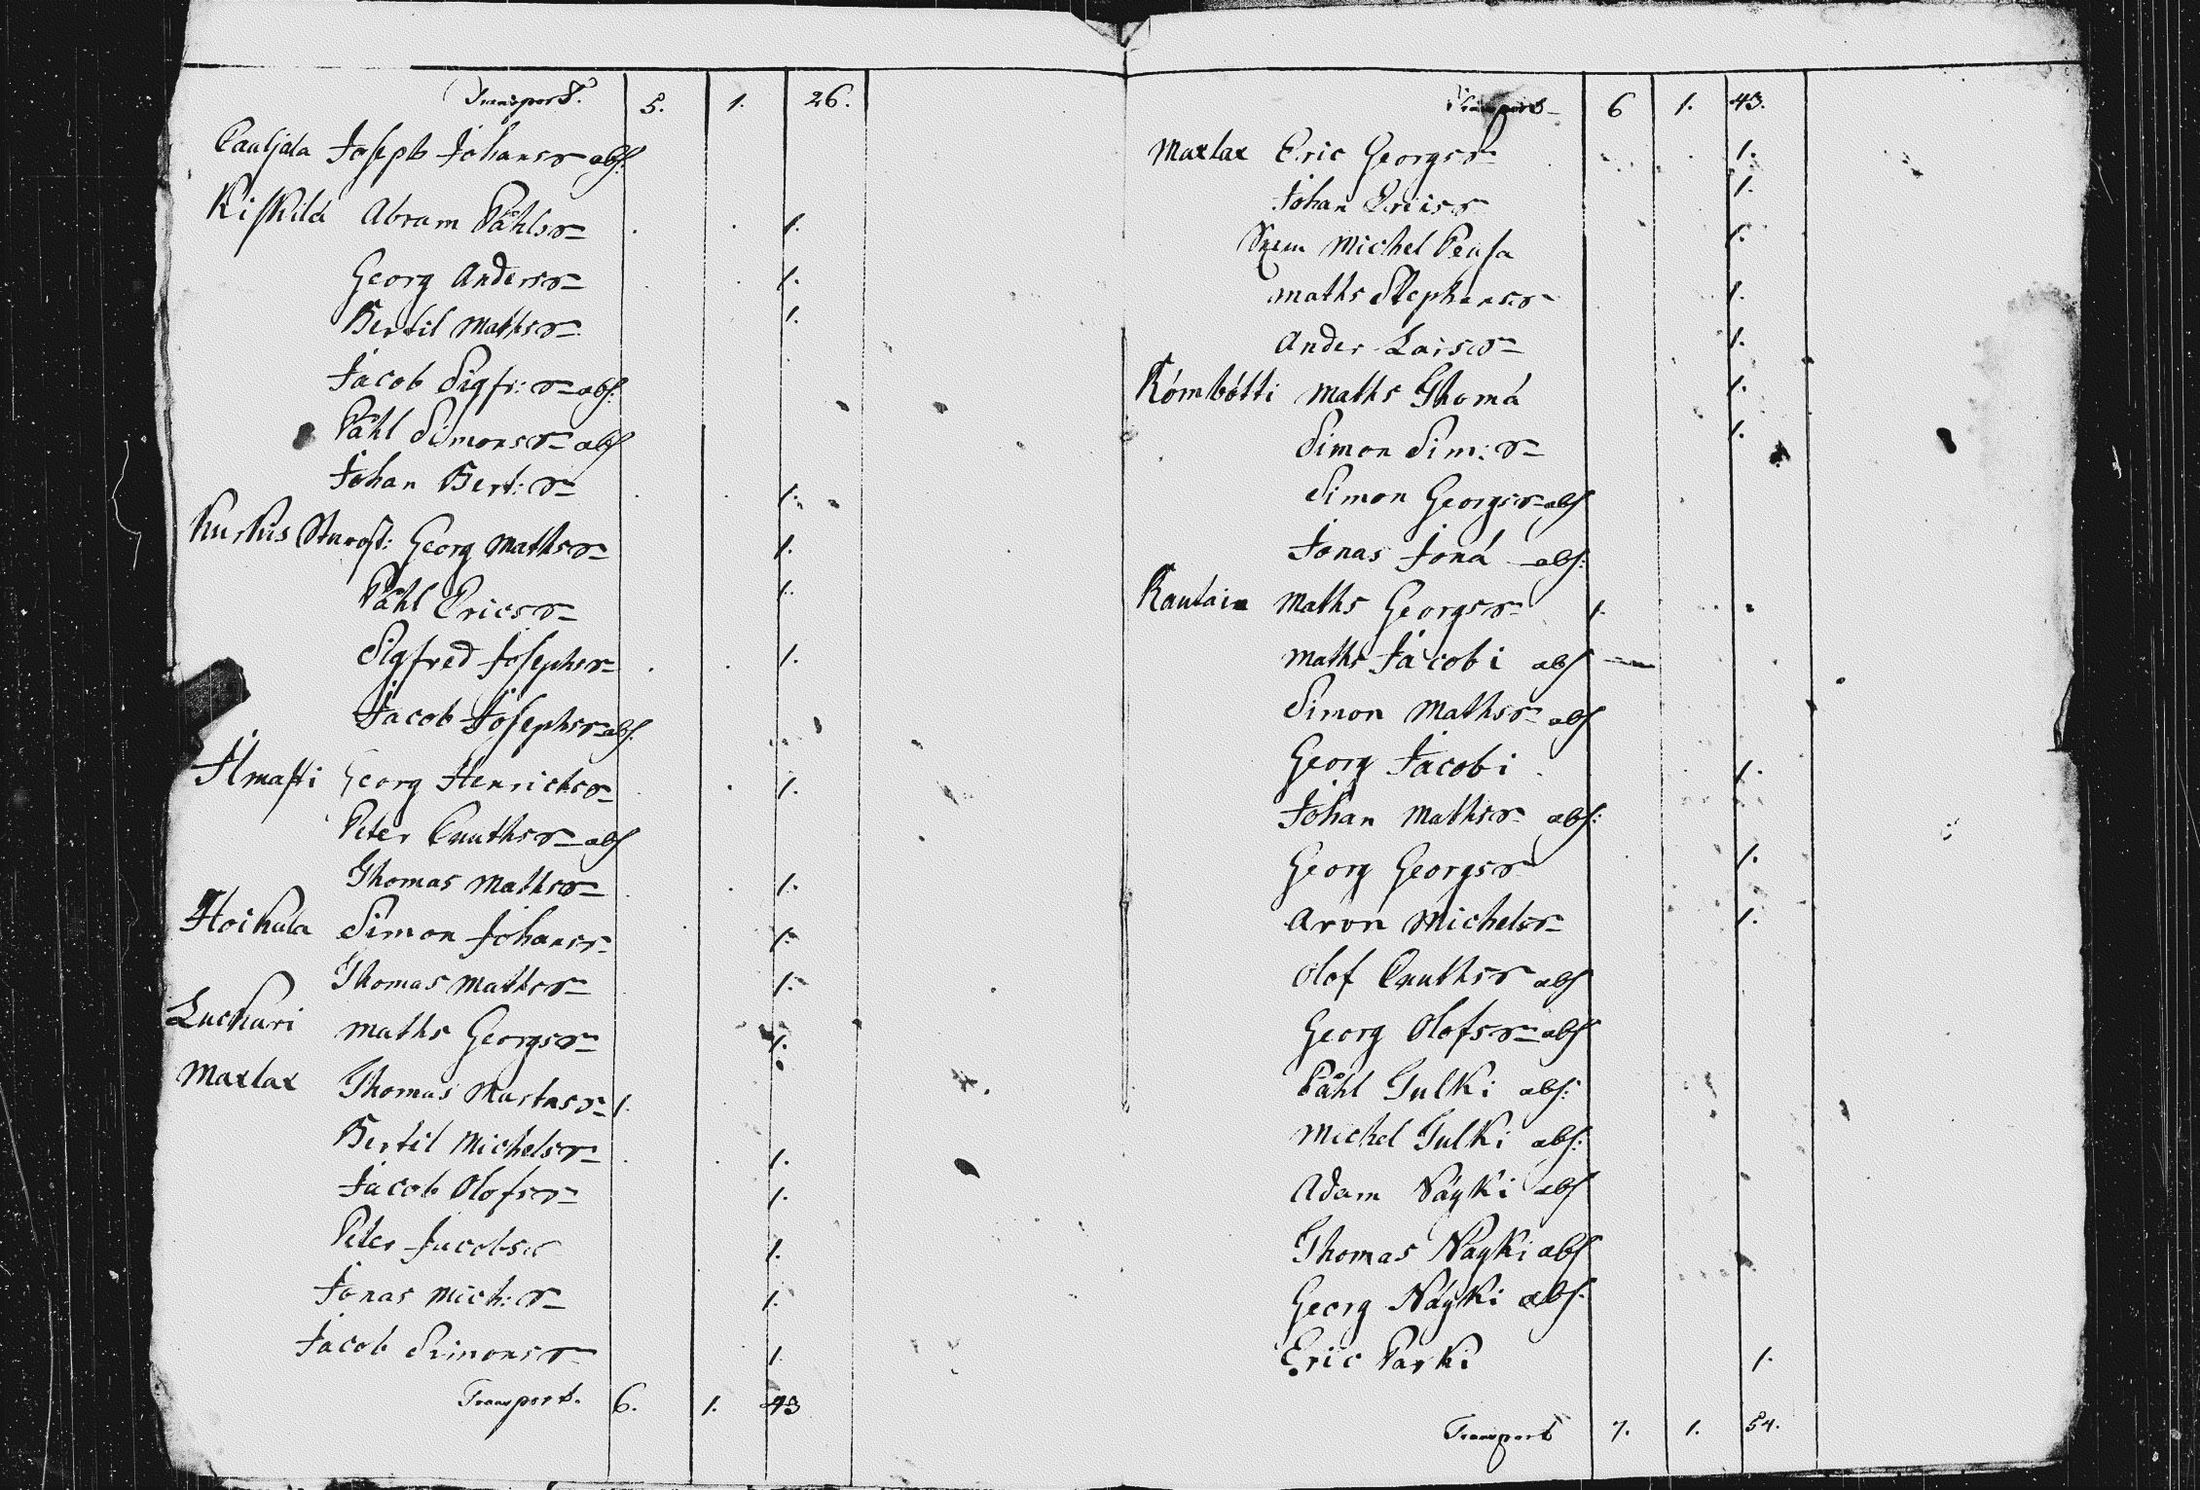 Transport. 5. 1. 26.
Cauljala Joseph Johansson abs:
Kiskilä Abram Påhlsson 1.
Georg Andersson 1.
Bertil Mathsson 1.
Jacob Sigfr: son abs:
Påhl Simonsson abs
Johan Bert: son 1.
Kurkis Starost: Georg Mathsson 1.
Påhl Ericsson 1.
Sigfred Josephsson 1.
Jacob Josephsson abs.
Ilmasti Georg Henricksson 1.
Peter Cnuthsson abs
Thomas Mathsson 1.
Hoikala Simon Johansson 1.
Thomas Mathsson 1.
Luckari Maths Georgsson 1.
Maxlax Thomas Mustasson 1.
Bertil Michelsson 1.
Jacob Olofsson 1.
Peter Jacobsson 1.
Jonas Mich: son 1.
Jacob Simonsson 1
Transport. 6. 1. 43
Transport 6 1. 43.
Maxlax Eric Georgsson 1.
Johan Ericsson 1.
Michel Peusa 1.
Maths Stephansson 1.
Anders Larsson 1.
Römbötti Maths Thomä 1.
Simon Sim: son 1.
Simon Georgsson abs
Jonas Jonä abs:
Rautain Maths Georgsson 1.
Maths Jacobi abs
Simon Mathsson abs
Georg Jacobi 1.
Johan Mathsson abs:
Georg Georgsson 1.
Aron Michelsson 1.
Olof Cnuthsson abs
Georg Olofsson abs
Påhl Tulki abs:
Michel Tulki abs:
Adam Näyki abs
Thomas Näyki abs
Georg Näyki abs:
Eric Parki 1.
Transport 7. 1. 54.